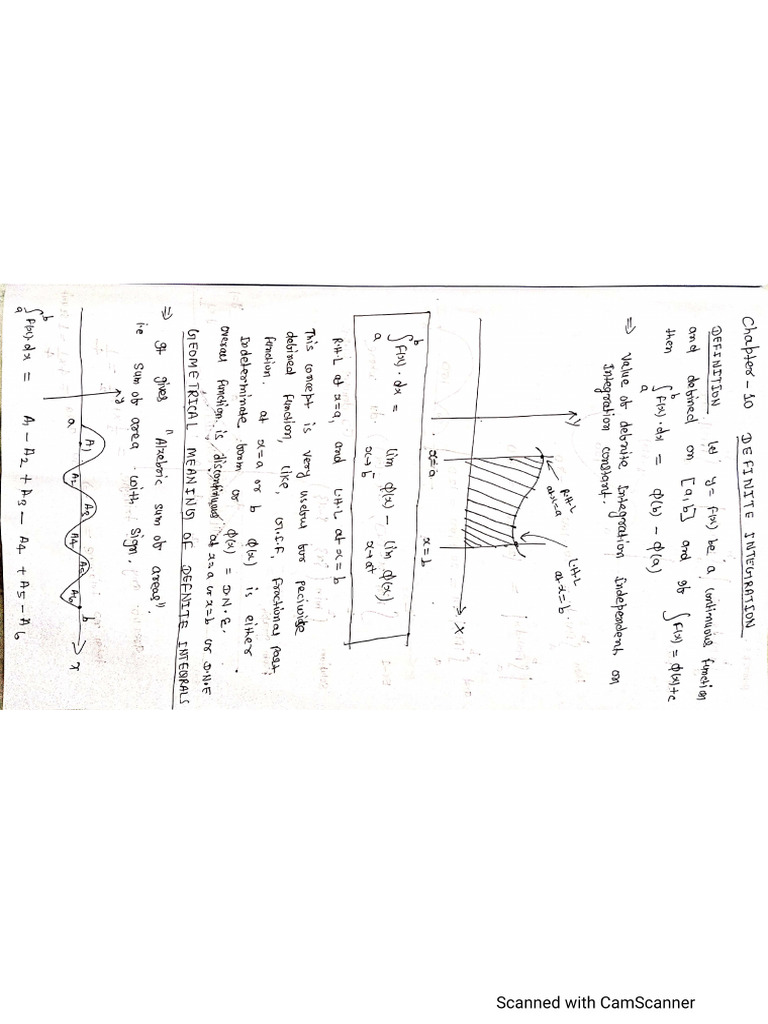 Chapter - 10 DEFINITE INTEGRATION
DEFINITION Let y = f(x) be a continuous function
and defined on [a,b] and if ∫f(x) = ϕ(x)+c
then ∫_a^b f(x)·dx = ϕ(b) - ϕ(a)
⇒ Value of definite Integration Independent on
Integration constant.
Y
R·H·L
at x=a
L·H·L
at x=b
X
x=a
x=b
∫_a^b f(x)·dx = lim ϕ(x) - lim ϕ(x)
x→b⁻ x→a⁺
R·H·L at x=a, and L·H·L at x=b
This concept is very useful for peciwise
defined function, like, G.I.F, fractional part
function. at x=a or b ϕ(x) is either
Indeterminate form or ϕ(x) = D·N·E.
overall function is discontinuous at x=a or x=b or D.N.E
GEOMETRICAL MEANING OF DEFINITE INTEGRALS
⇒ It gives "Algebric sum of areas".
ie sum of area with sign.
y
a A1 A2 A3 A4 A5 A6 b
x
∫_a^b f(x)·dx = A1 - A2 + A3 - A4 + A5 - A6
Scanned with CamScanner